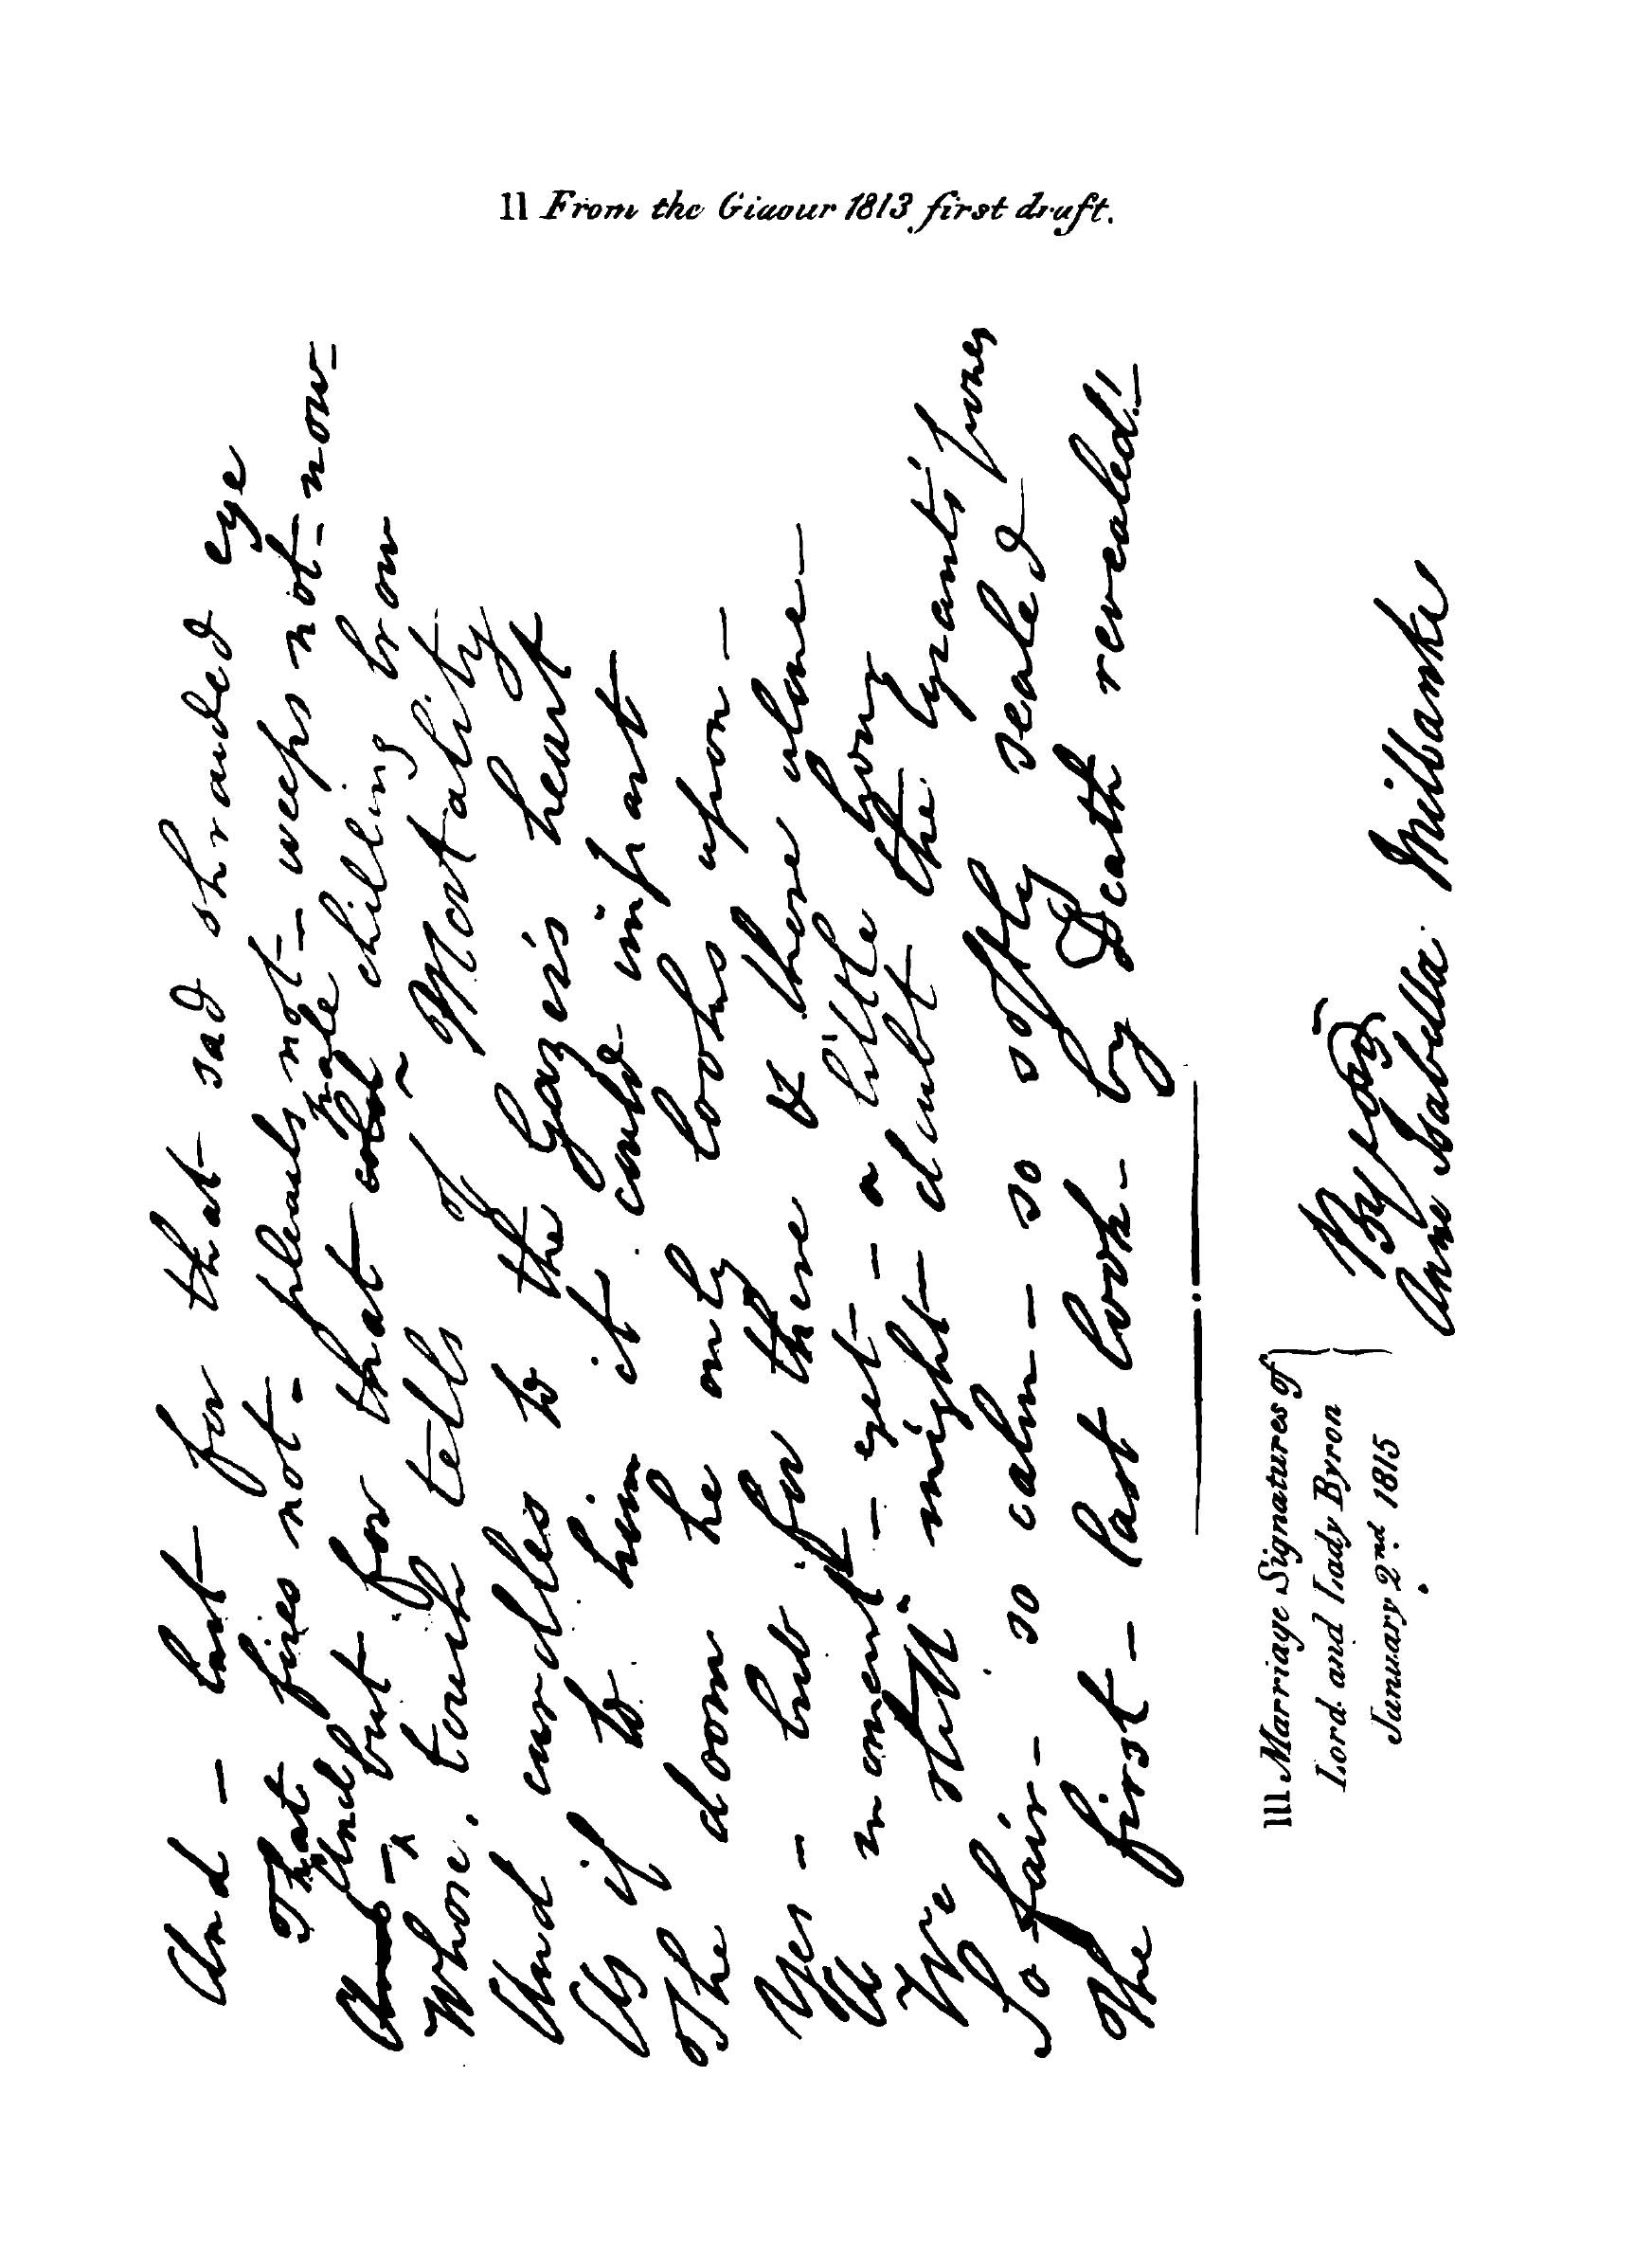 11 From the Giaour 1813 first draft.
And - but for that - sad shrouded eye
That fires not - pleads not - weeps not - now -
And pale
And - but for that cold chilling brow
Whose touch tells of Mortality
And curdles to the Gazer's heart
As if to him it could impart
The doom he only looks upon -
Yes - but for these & these alone -
A moment - yet - a little hour
We still might doubt the tyrant's power
So fair - so calm - so softly sealed
The first - last look - by Death revealed! -
111 Marriage Signatures of
Lord and Lady Byron
January 2nd 1815
Byron
Anne Isabella Milbanke